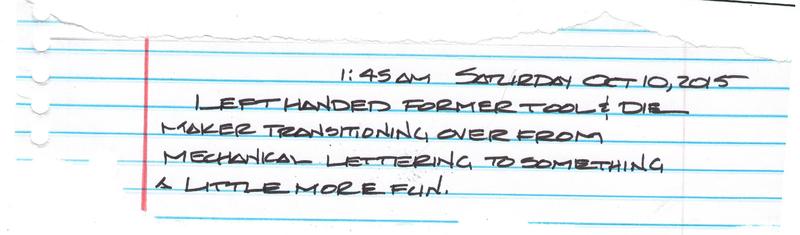 1:45 AM SATURDAY OCT 10, 2015
LEFT HANDED FORMER TOOL & DIE
MAKER TRANSITIONING OVER FROM
MECHANICAL LETTERING TO SOMETHING
A LITTLE MORE FUN.